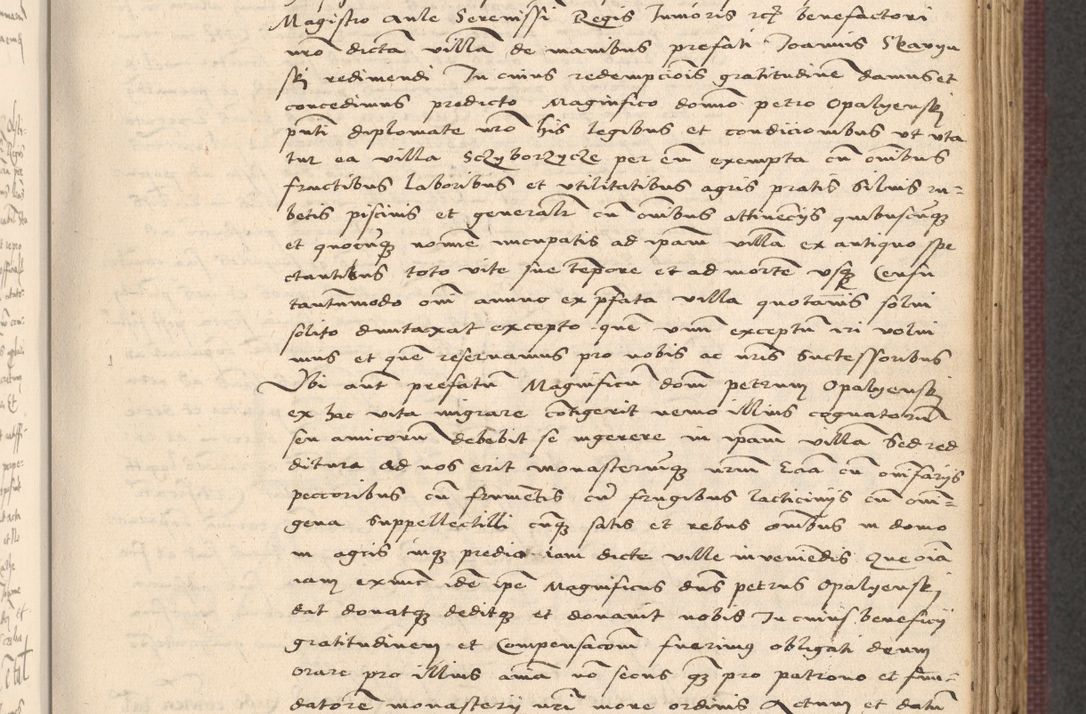 Magistro Aule Serenissi Regis Iunioris rcz benefactori
nro dictā villā de manibus prefati Ioannis Skarga
ski redimendi In cuius redempciois gratitudinē damus et
concedimus predicto Magnifico domno petro Opalyenskj
pnti diplomate nro his legibus et condicionibus vt vta
tur ea villa Sczyborzycze per eū exempta cū omibus
fructibus laboribus et vtilitatibus agris pratis siluis ru=
betis piscinis et generalr cū omibus attinecijs quibuscūqz
et quocūqz nomīe nūcupatis ad ipam villā ex antiquo spe
ctantibus toto vite sue tēpore et ad mortē vsqz Censu
tantummodo omī annuo ex pfata villa quotānis solui
solito duntaxat excepto quē vnū exceptū iri volui
mus et quē reseruamus pro nobis ac nris Successoribus
Vbi aut prefatū Magnificū domī petrum Opalyenskj
ex hac vita migrare cōtigerit nemo illius cognatorū
seu amicorū debebit se ingerere in ipam villā Sed red
ditura ad nos erit monasteriūqz nrm cū omīfarijs
peccoribus cū frumētis cū frugibus lacticinijs cū omī=
gena suppellectilli cūqz satis et rebus omībus in domo
in agris inqz predia iam dicte ville inveniēdis Que oīa
iam exnūc idē ipē Magnificus dns petrus Opalyenskj
dat donatqz deditqz et donauit nobis In cuius beneficij
gratitudinem et Compensacoīm fuerimus obligati deum
orare pro illius aīma nō secus qz pro patrono et fun=
datore monasterij nri more ordinis Actum et datū